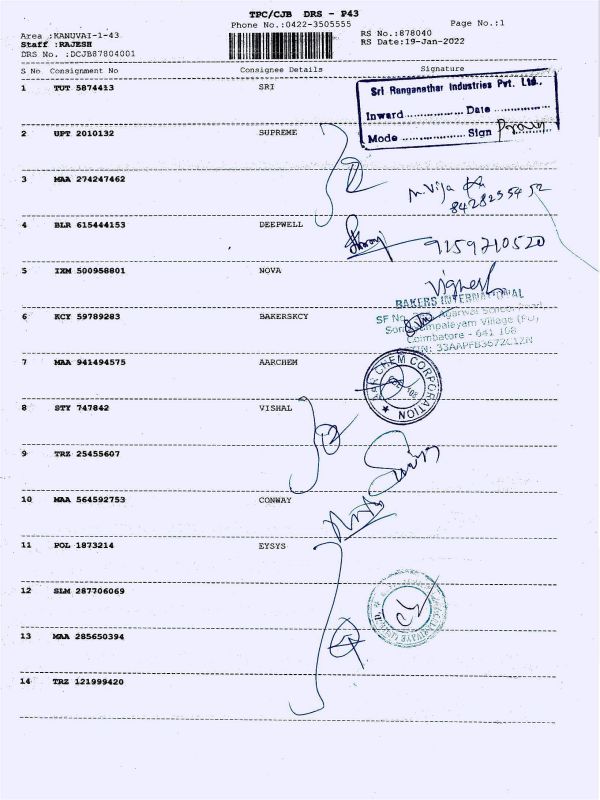 TPC/CJB DRS - P43
Phone No.:0422-3505555
Page No.:1
Area :KANUVAI-1-43
RS No.:878040
Staff :RAJESH
RS Date:19-Jan-2022
DRS No. :DCJB87804001
S No Consignment No Consignee Details Signature
1 TUT 5874413 SRI
Sri Ranganathar Industries Pvt. Ltd.,
Inward.................Date.................
Mode.................Sign
2 UPT 2010132 SUPREME
3 MAA 274247462
4 BLR 615444153 DEEPWELL
9159210520
5 IXM 500958801 NOVA
Vignesh
BAKERS INTERNATIONAL
6 KCY 59789283 BAKERSKCY
SF No. Agarwal School Road,
Coimbatore - 641 108
7 MAA 941494575 AARCHEM
AAR CHEM CORPORATION
8 STY 747842 VISHAL
9 TRZ 25455607
10 MAA 564592753 CONWAY
11 POL 1873214 EYSYS
12 SLM 287706069
13 MAA 285650394
14 TRZ 121999420